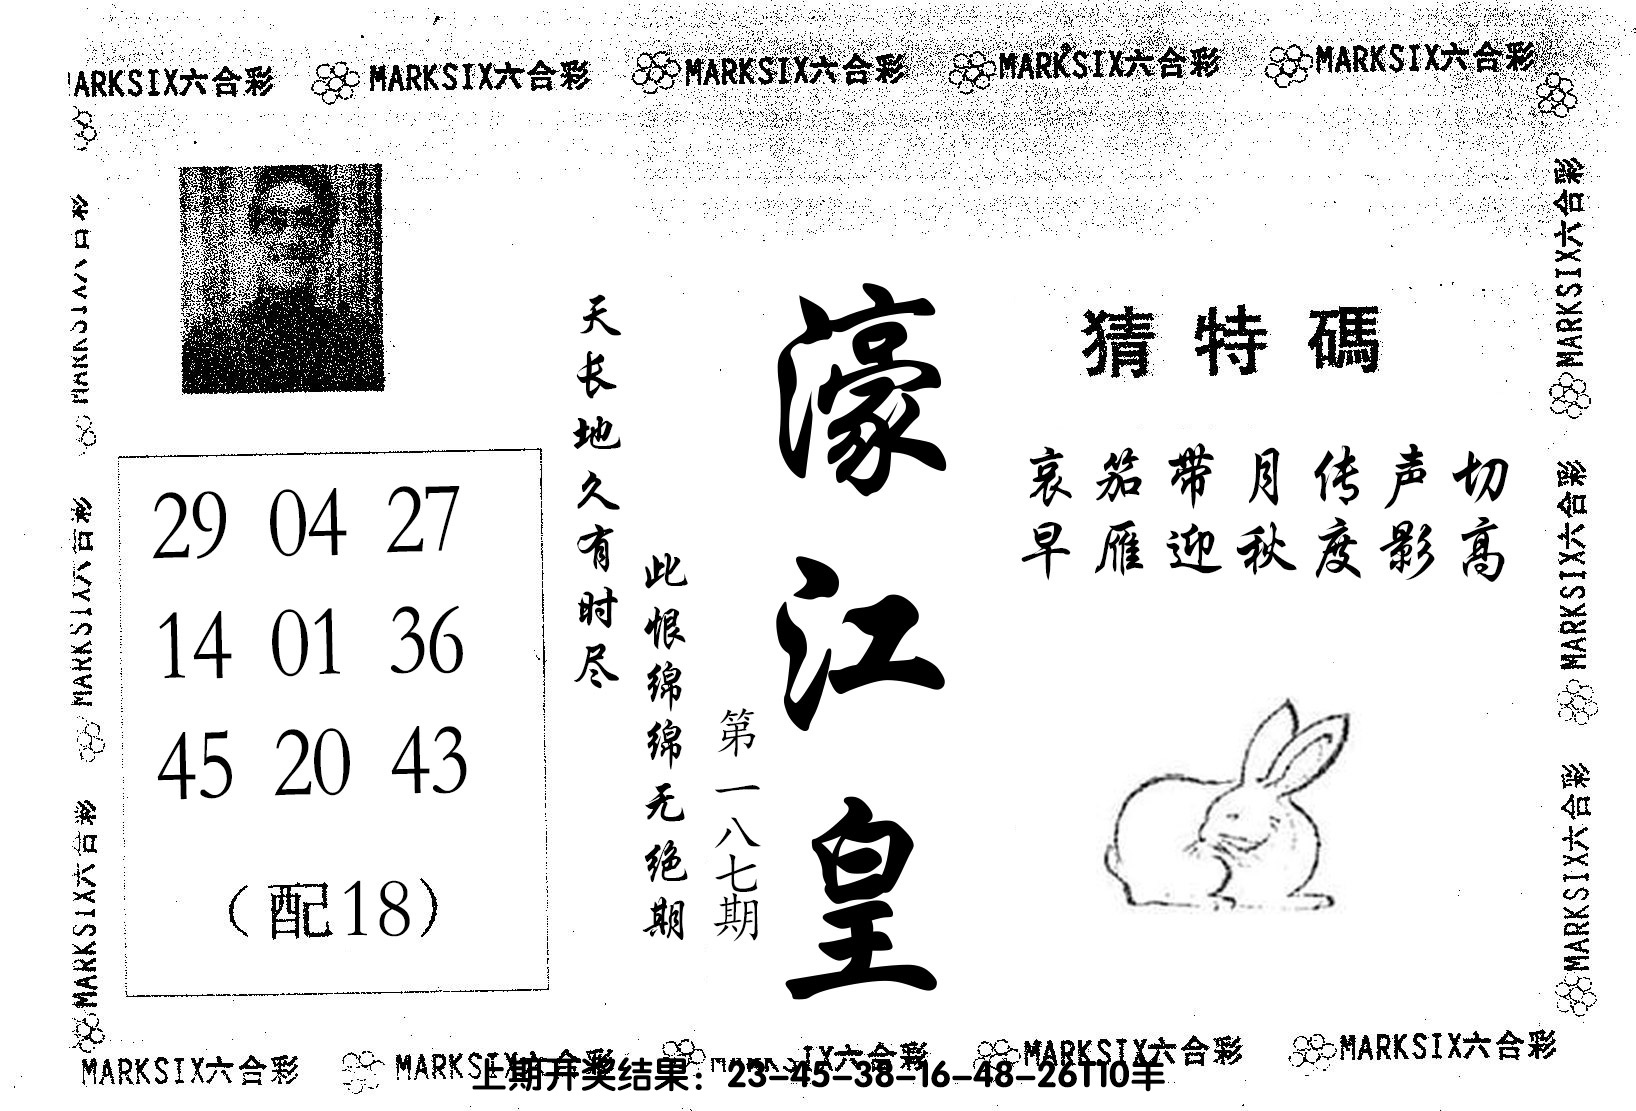 MARKSIX六合彩 MARKSIX六合彩 MARKSIX六合彩 MARKSIX六合彩 MARKSIX六合彩
猜特碼
哀笳带月传声切
早雁迎秋度影高
濠江皇
第一八七期
天长地久有时尽
此恨绵绵无绝期
29 04 27
14 01 36
45 20 43
(配18)
MARKSIX六合彩
MARKSIX六合彩
MARKSIX六合彩
MARKSIX六合彩
MARKSIX六合彩
MARKSIX六合彩
MARKSIX六合彩 MARKSIX六合彩 MARKSIX六合彩 MARKSIX六合彩 MARKSIX六合彩
上期开奖结果：23-45-38-16-48-26T10羊